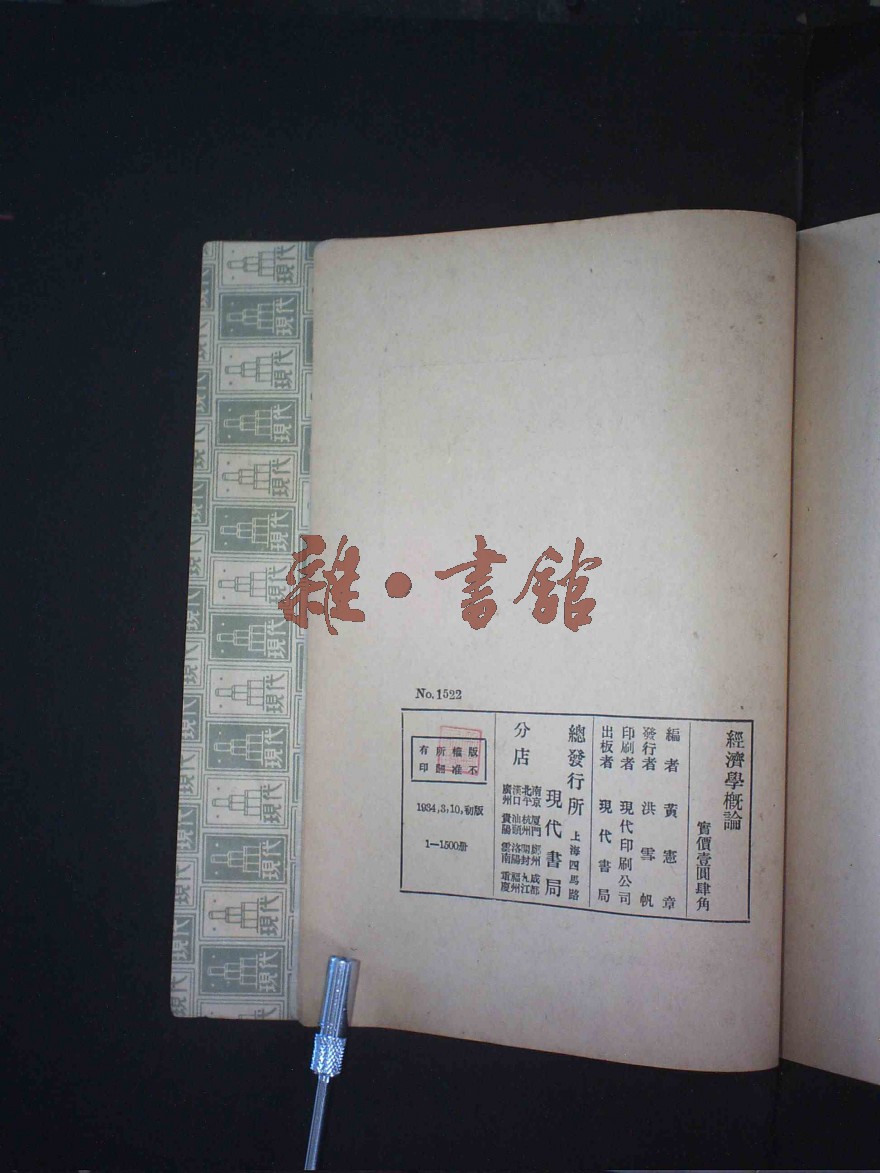 雜·書館
No. 1522
經濟學概論
實價壹圓肆角
編者 黃憲章
發行者 洪雪帆
印刷者 現代印刷公司
出板者 現代書局
總發行所 上海四馬路 現代書局
分店
南京 厦門 鄭州 成都
北平 杭州 開封 九江
漢口 汕頭 洛陽 福州
廣州 貴陽 雲南 重慶
版權所有
不准翻印
1934,3,10,初版
1—1500册
現代
現代
現代
現代
現代
現代
現代
現代
現代
現代
現代
現代
現代
現代